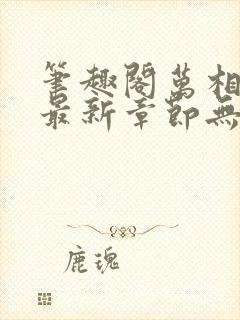 筆趣閣萬相
最新章節無
鹿瑰